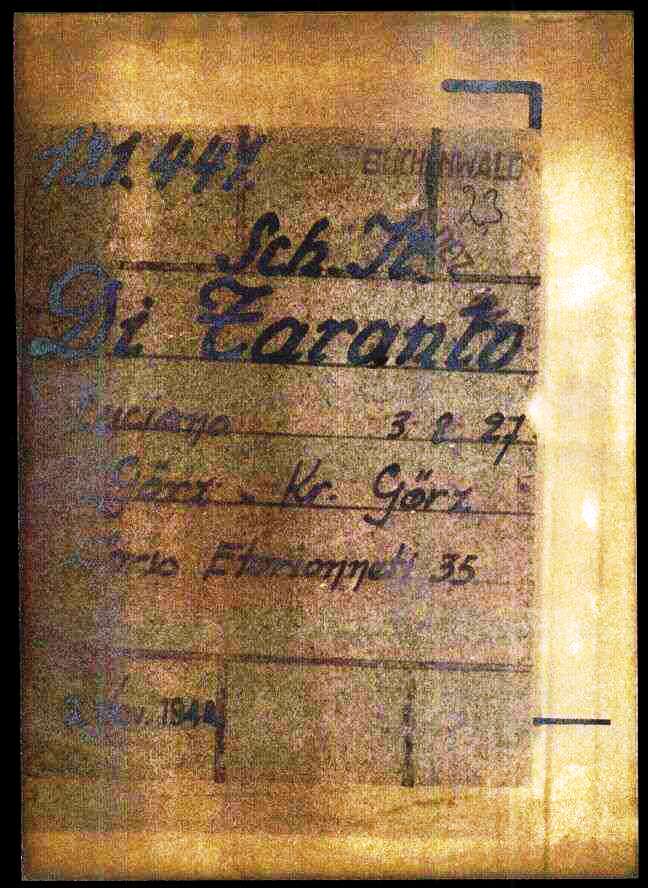 121.447.
BUCHENWALD
23
Sch. It.
Di Taranto
Luciano 3 2 27
Görz - Kr. Görz
35
Nov. 1944